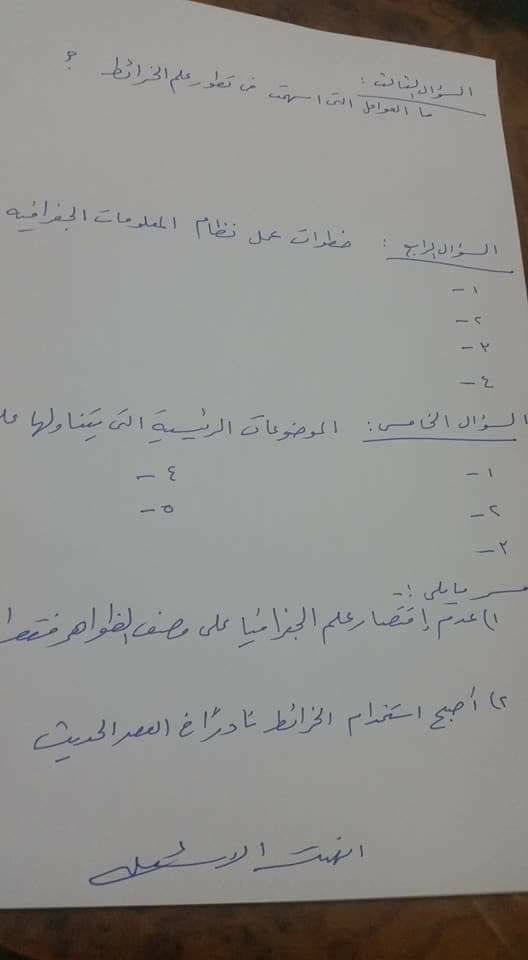 السؤال الثالث :
ما العوامل التي اسهمت في تطور علم الخرائط ؟
السؤال الرابع : خطوات عمل نظام المعلومات الجغرافيه
١-
٢-
٣-
٤-
السؤال الخامس : الموضوعات الرئيسية التي يتناولها
١- ٤-
٢- ٥-
٣-
فسر ما يلي :-
١) عدم إقتصار علم الجغرافيا على وصف الظواهر فقط
٢) أصبح استخدام الخرائط نادرًا في العصر الحديث
انتهت الاسئله